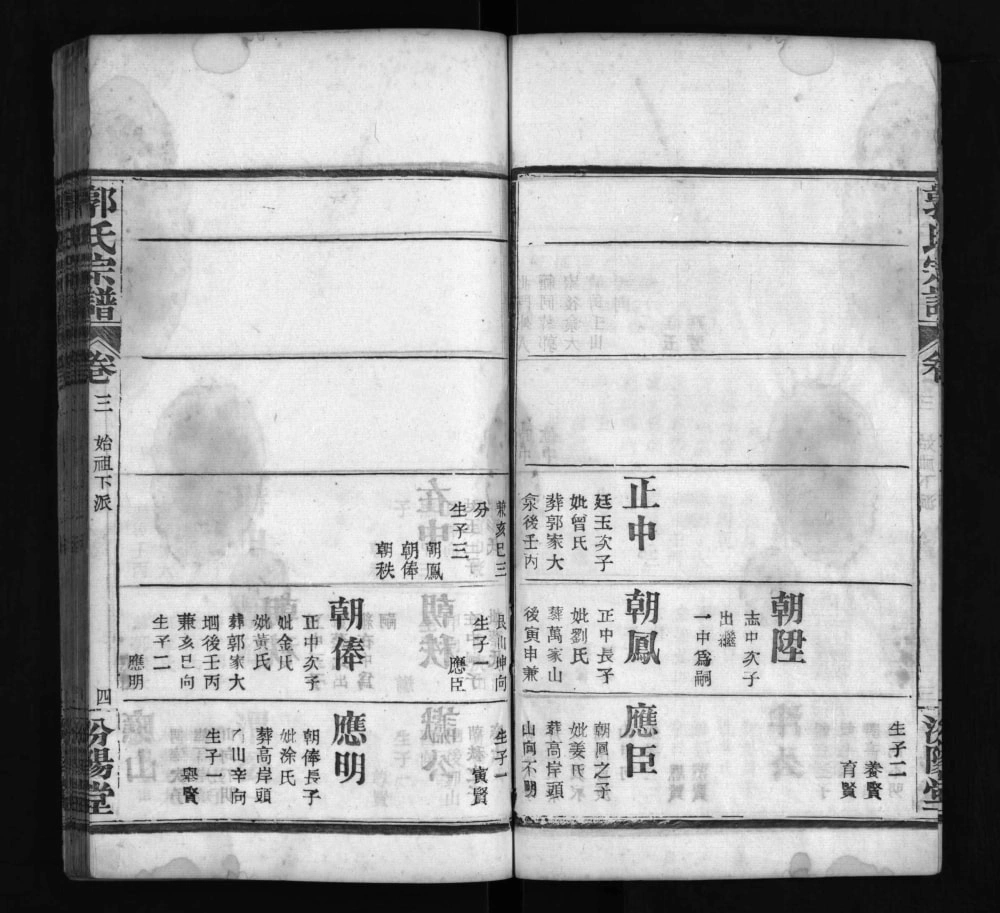 生子二
養賢
育賢
正中
廷玉次子
妣曾氏
葬郭家大
後壬丙
兼亥巳三
分
生子三
朝鳳
朝俸
朝秩
朝陞
志中次子
出繼
一中爲嗣
朝鳳
正中長子
妣劉氏
葬萬家山
後寅申兼
艮山坤向
生子一
應臣
朝俸
正中次子
妣金氏
妣黃氏
葬郭家大
堌後壬丙
兼亥巳向
生子二
應明
應臣
朝鳳之子
妣姜氏
葬高岸頭
山向不明
生子一
寅賢
應明
朝俸長子
妣涂氏
葬高岸頭
乙山辛向
生子一
舉賢
郭氏宗譜
卷三
始祖下派
四
汾陽堂